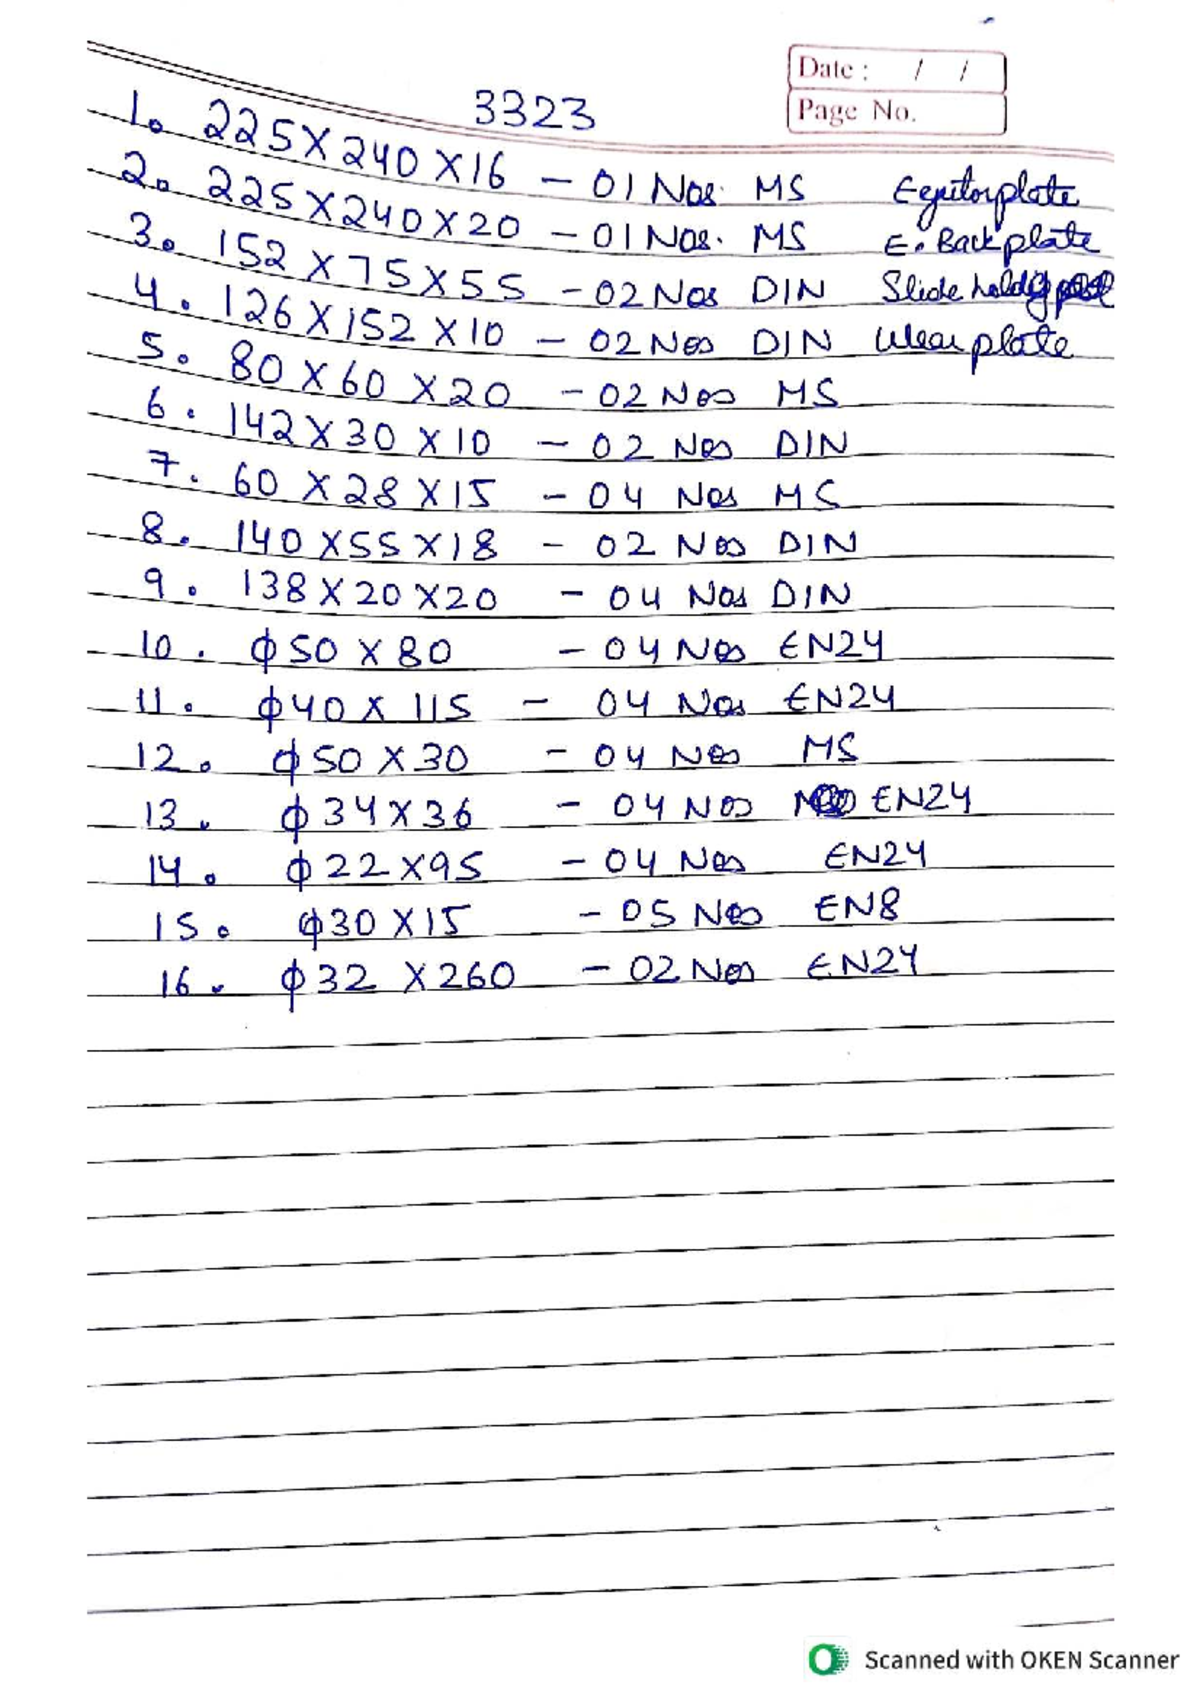 Date : / /
Page No.
3323
1. 225X240X16 - 01 Nos. MS Egnitorplate
2. 225X240X20 - 01 Nos. MS E. Back plate
3. 152X75X55 - 02 Nos DIN Slide holdig
4. 126X152X10 - 02 Nos DIN Wear plate
5. 80X60X20 - 02 Nos MS
6. 142X30X10 - 02 Nos DIN
7. 60X28X15 - 04 Nos MS
8. 140X55X18 - 02 Nos DIN
9. 138X20X20 - 04 Nos DIN
10. ϕ50X80 - 04 Nos EN24
11. ϕ40X115 - 04 Nos EN24
12. ϕ50X30 - 04 Nos MS
13. ϕ34X36 - 04 Nos EN24
14. ϕ22X95 - 04 Nos EN24
15. ϕ30X15 - 05 Nos EN8
16. ϕ32X260 - 02 Nos EN24
Scanned with OKEN Scanner